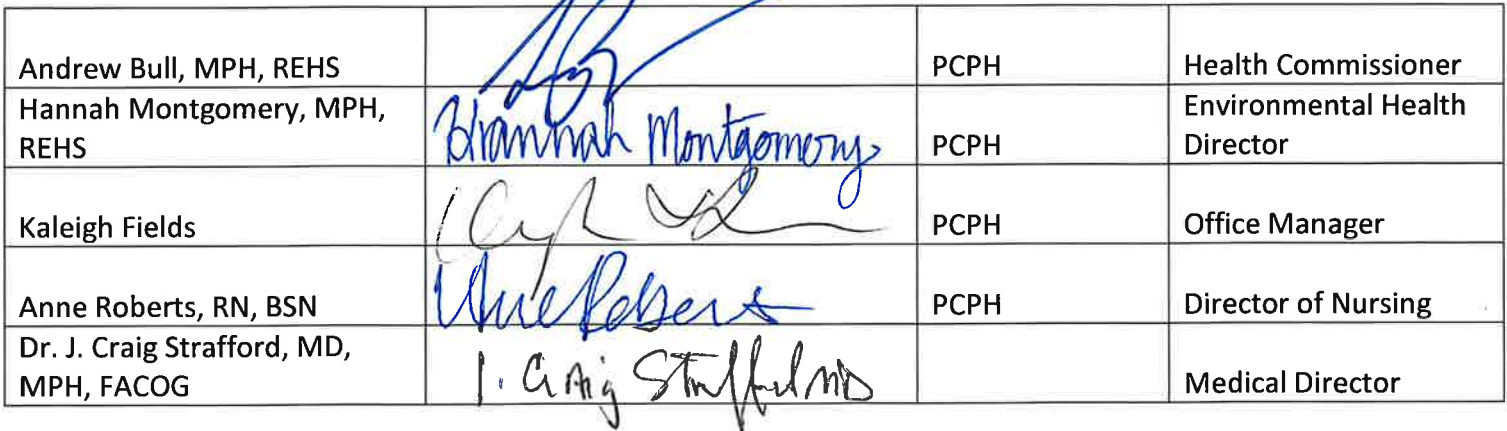 Andrew Bull, MPH, REHS PCPH Health Commissioner
Hannah Montgomery, MPH, REHS Hannah Montgomery PCPH Environmental Health Director
Kaleigh Fields PCPH Office Manager
Anne Roberts, RN, BSN Anne Roberts PCPH Director of Nursing
Dr. J. Craig Strafford, MD, MPH, FACOG J. Craig Strafford MD Medical Director